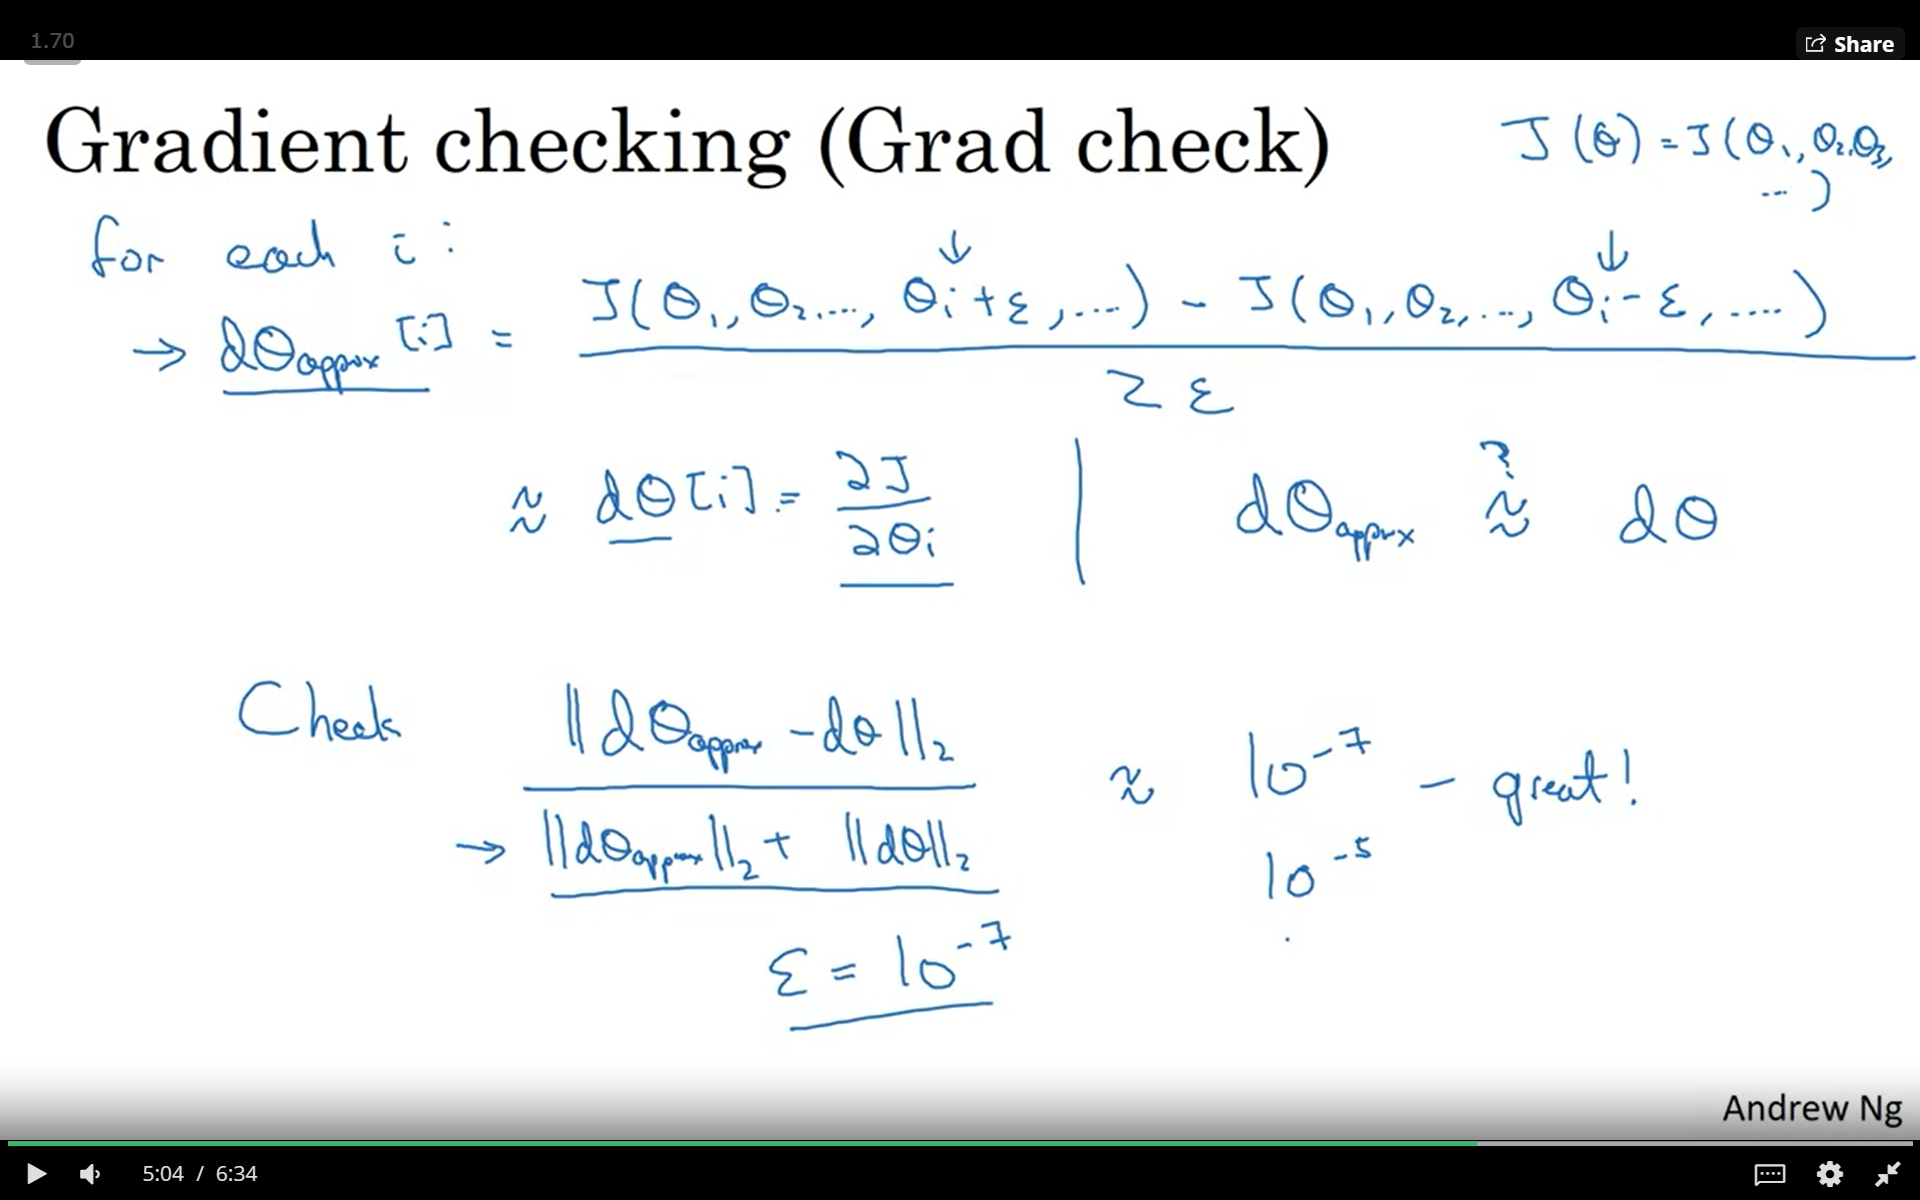 1.70
Share
Gradient checking (Grad check)
J(θ) = J(θ₁, θ₂, θ₃, ...)
for each i:
→ dθapprox[i] = J(θ₁, θ₂, ..., θᵢ+ε, ....) - J(θ₁, θ₂, ..., θᵢ-ε, ....)
2ε
≈ dθ[i] = ∂J/∂θᵢ | dθapprox ≈? dθ
Check ||dθapprox - dθ||₂ ≈ 10⁻⁷ - great!
→ ||dθapprox||₂ + ||dθ||₂ 10⁻⁵
ε = 10⁻⁷
Andrew Ng
5:04 / 6:34